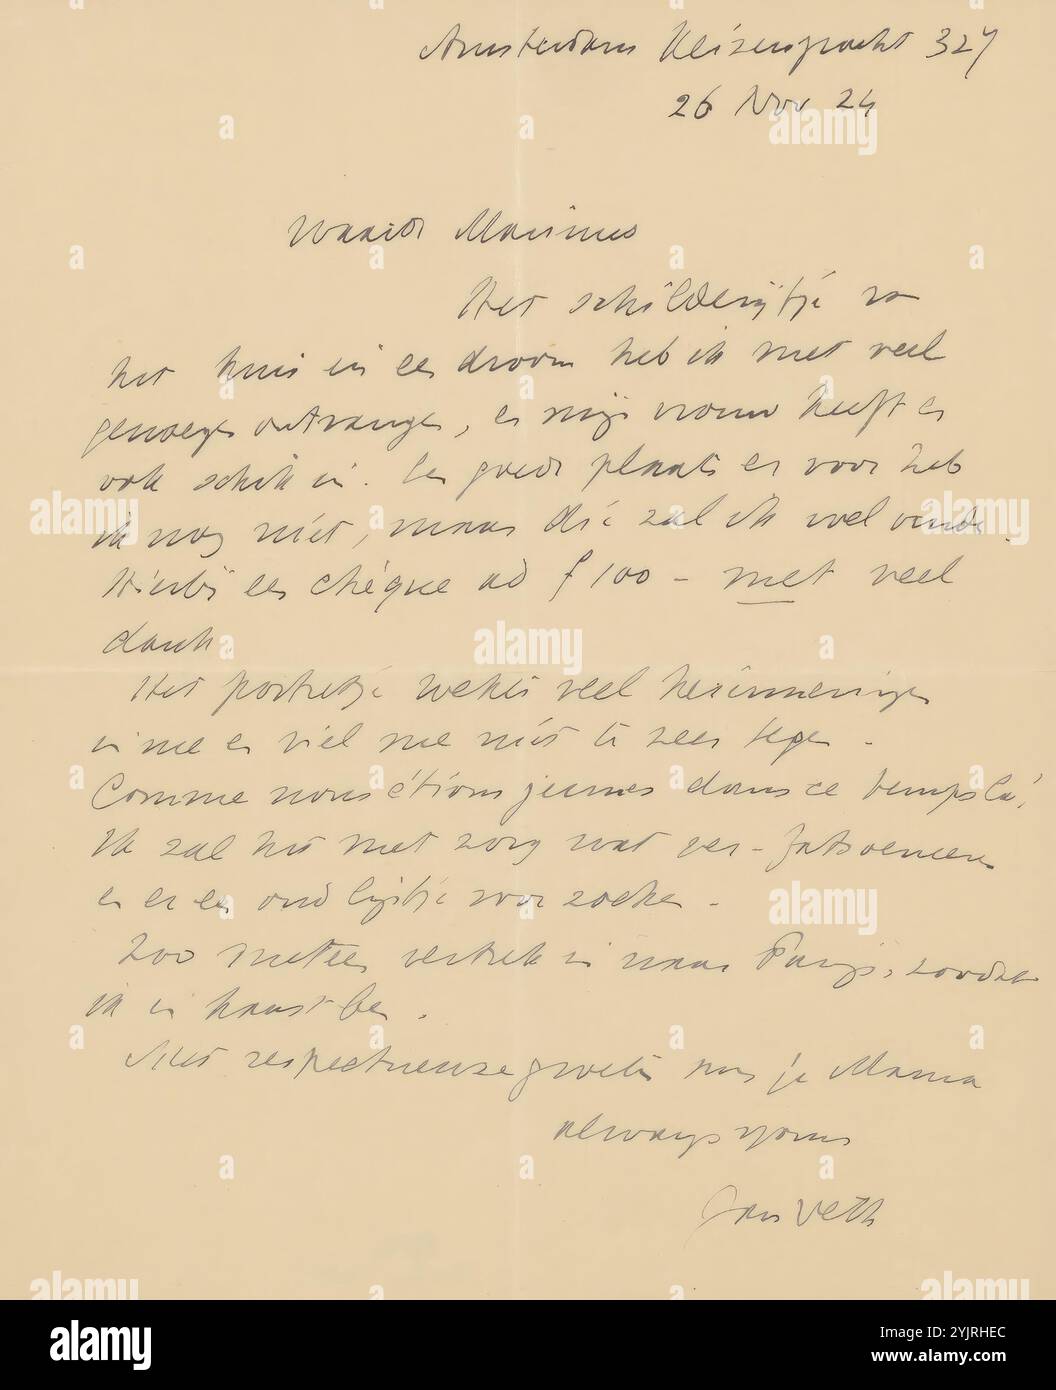 Amsterdam Keizersgracht 327
26 Nov 24
Waarde Marius
Het schilderijtje van
het huis in een droom heb ik met veel
genoegen ontvangen, en mijn vrouw heeft er
ook schik in. Een goede plaats er voor heb
ik nog niet, maar die zal ik wel vinden.
Hierbij een chèque ad f 100 – met veel
dank.
Het portretje wekte veel herinneringen
in me en viel me niet te zeer tegen.
Comme nous étions jeunes dans ce temps là!
Ik zal het met zorg wat ver-fatsoeneeren
en er een oud lijstje voor zoeken.
Zoo meteen vertrek ik naar Parijs, zoodat
ik in haast ben.
Met respectueuze groeten aan je Mama
always yours
Jan Veth
alamy
Image ID: 2YJRHEC
www.alamy.com